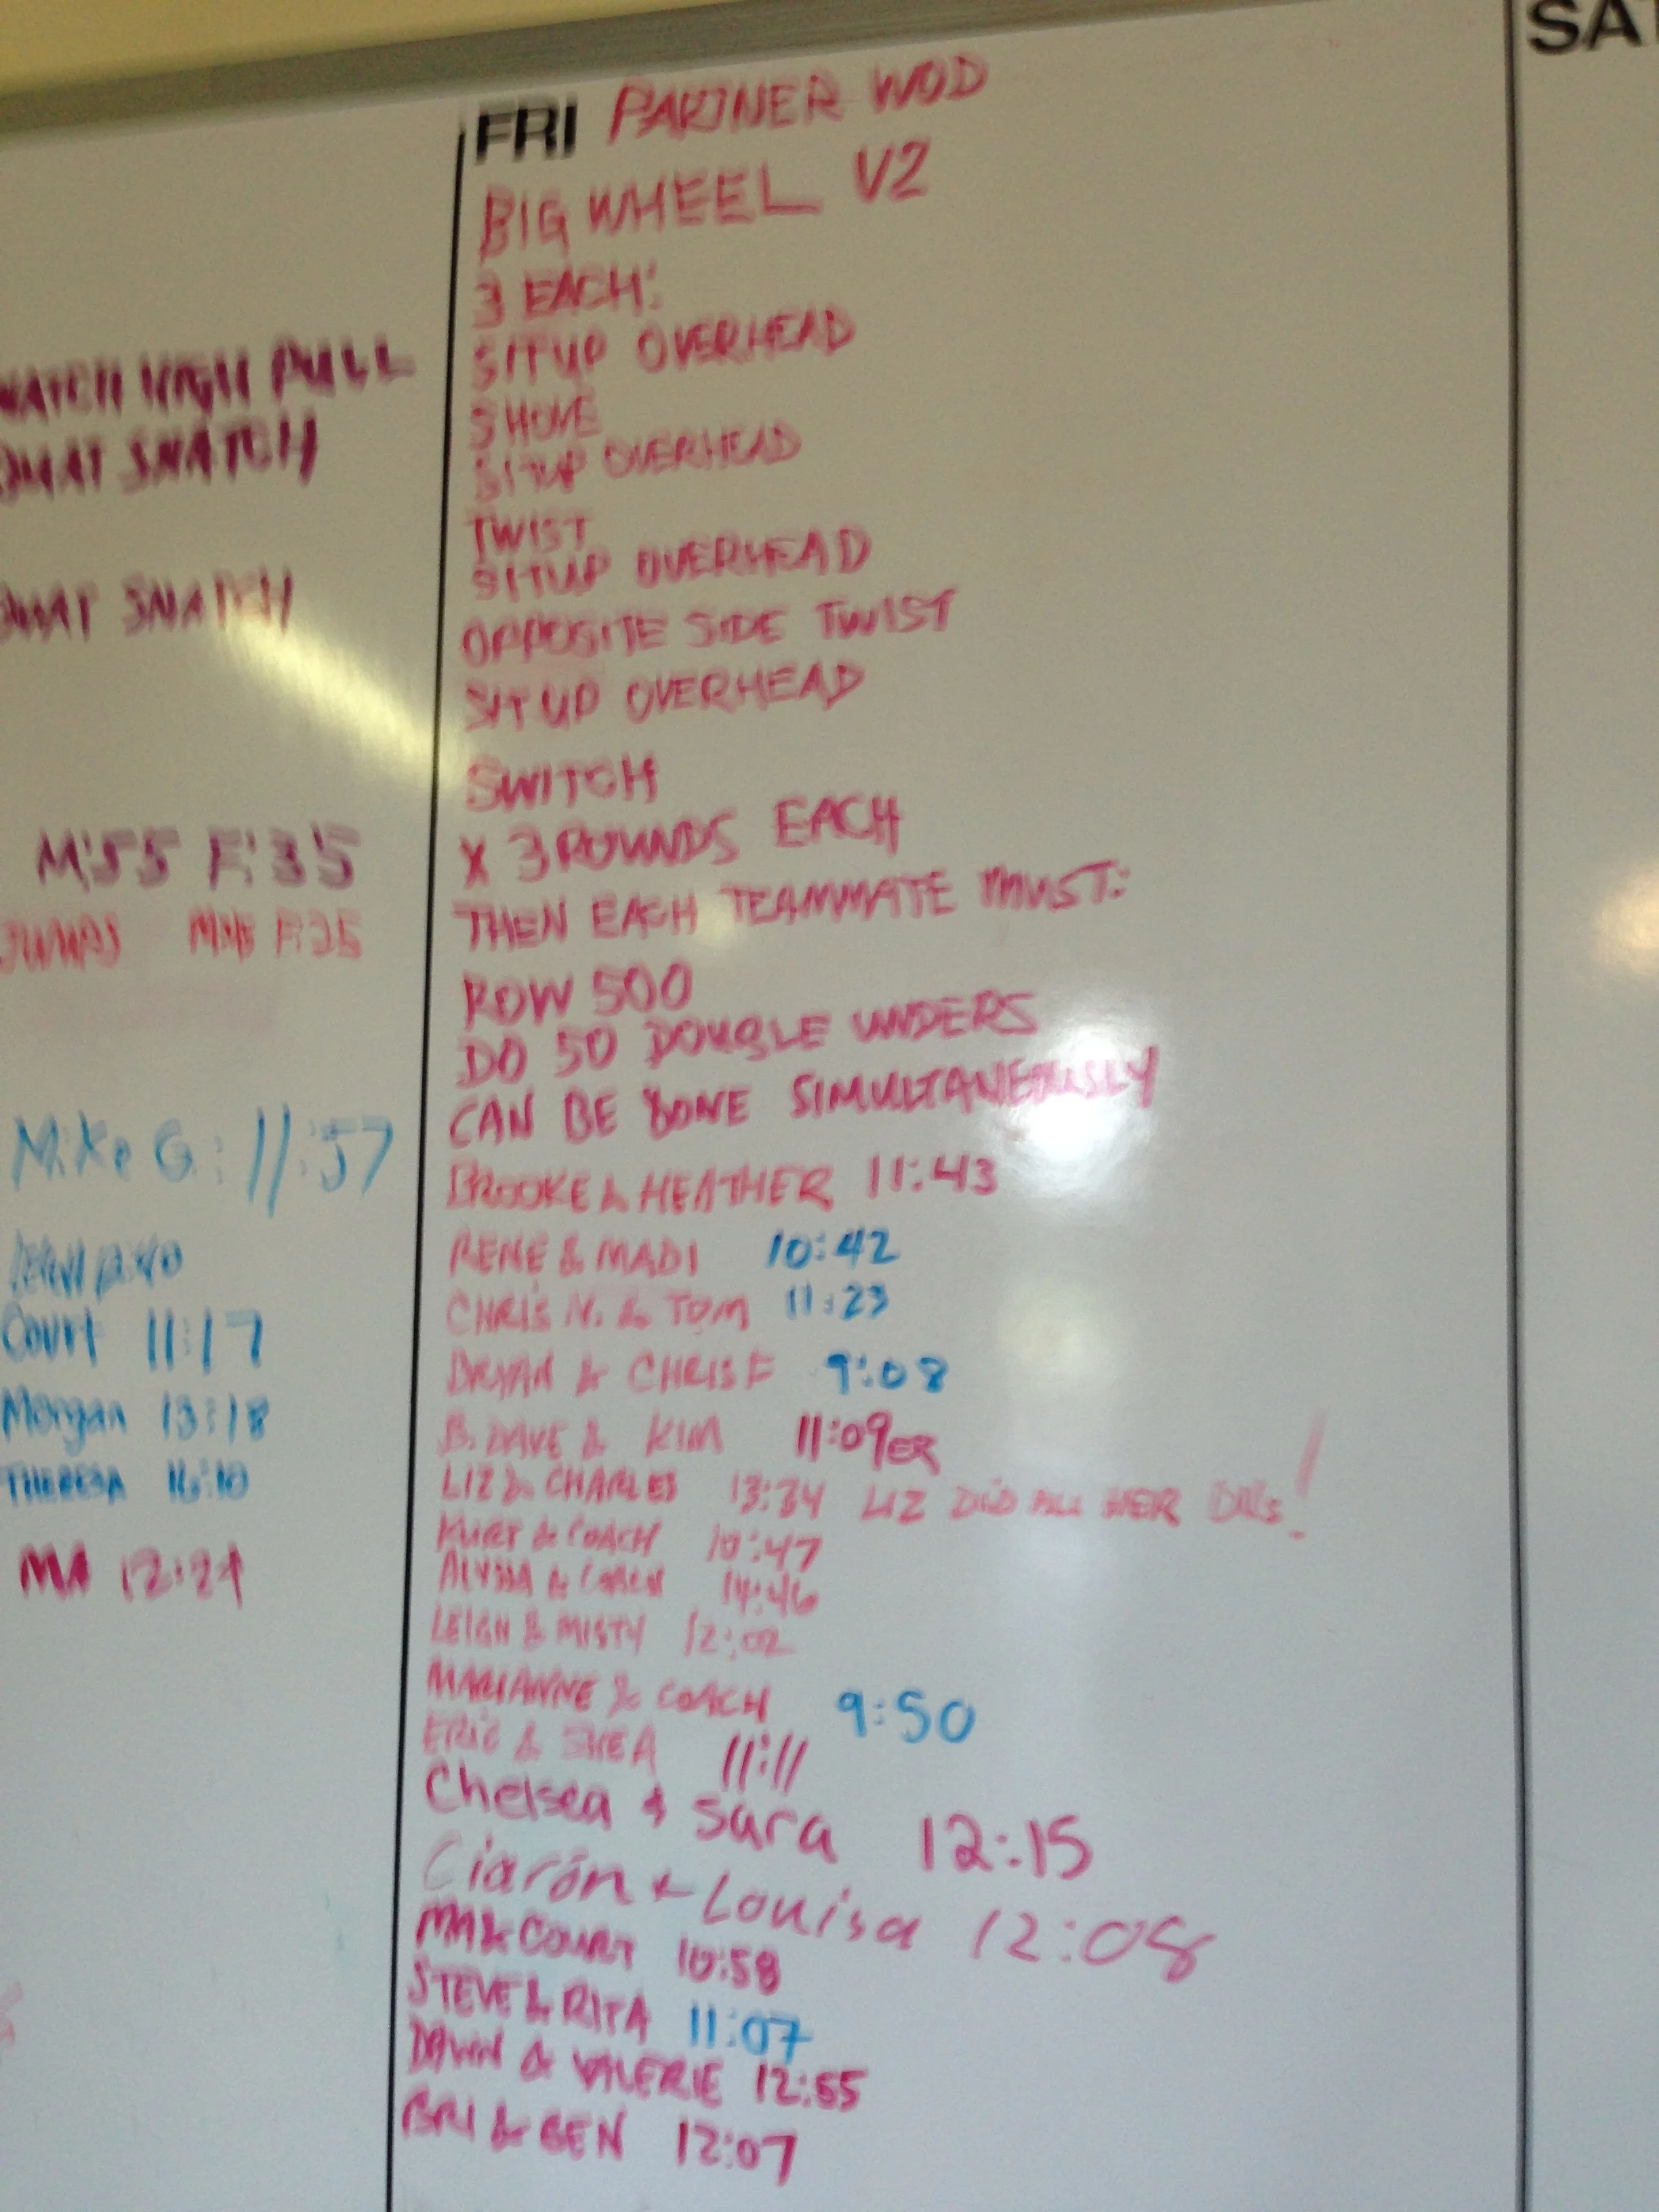 SA
FRI PARTNER WOD
BIG WHEEL V2
3 EACH:
SITUP OVERHEAD
SHOVE
SITUP OVERHEAD
TWIST
SITUP OVERHEAD
OPPOSITE SIDE TWIST
SITUP OVERHEAD
SWITCH
X 3 ROUNDS EACH
THEN EACH TEAMMATE MUST:
ROW 500
DO 50 DOUBLE UNDERS
CAN BE DONE SIMULTANEOUSLY
BROOKE & HEATHER 11:43
RENE & MADI 10:42
CHRIS N. & TOM 11:23
BRYAN & CHRIS F 9:08
B. DAVE & KIM 11:09ER
LIZ & CHARLES 13:34 LIZ DID ALL HER DUs!
KURT & COACH 10:47
ALYSSA & COACH 14:46
LEIGH & MISTY 12:02
MARIANNE & COACH 9:50
ERIC & SHEA 11:11
Chelsea & Sara 12:15
Ciarón & Louisa 12:08
MA & COURT 10:58
STEVE & RITA 11:07
DAWN & VALERIE 12:55
BRI & BEN 12:07
NATCH HIGH PULL
SNATCH
SNATCH
M:55 F:35
Mike G: 11:57
Court 11:17
Morgan 13:18
THERESA
MA 12:24